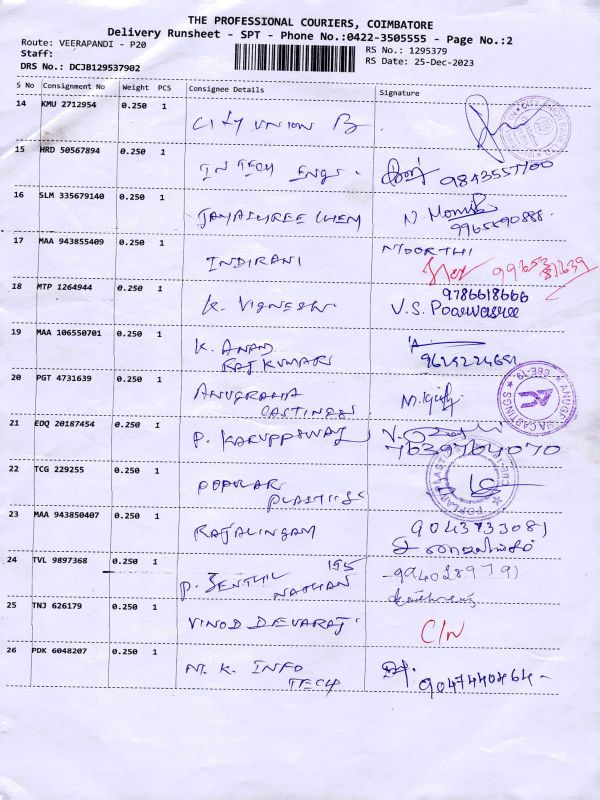 THE PROFESSIONAL COURIERS, COIMBATORE
Delivery Runsheet - SPT - Phone No.:0422-3505555 - Page No.:2
Route: VEERAPANDI - P20
RS No.: 1295379
Staff:
RS Date: 25-Dec-2023
DRS No.: DCJB129537902
S No Consignment No Weight PCS Consignee Details Signature
14 KMU 2712954 0.250 1 CITY UNION B
15 HRD 50567894 0.250 1 INTECH ENGG. 9843557700
16 SLM 335679140 0.250 1 JAYASHREE CHEM
17 MAA 943855409 0.250 1 INDIRANI MOORTHI
18 MTP 1264944 0.250 1 K. VIGNESH 9786618666
V.S. Poorvasree
19 MAA 106550701 0.250 1 K. ANAND
RAJKUMAR
20 PGT 4731639 0.250 1 ANUGRAHA
CASTINGS
21 EDQ 20187454 0.250 1 P. KARUPPSWAY 7639764070
22 TCG 229255 0.250 1 POPULAR
PLASTICS
23 MAA 943850407 0.250 1 RAJALINGAM 9043733081
24 TVL 9897368 0.250 1 P. SENTHIL 195
NATHAN
25 TNJ 626179 0.250 1 VINOD DEVARAJ C/N
26 PDK 6048207 0.250 1 M. K. INFO
TECH 9047440864